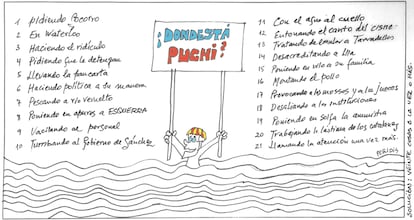 1 Pidiendo socorro
2 En Waterloo
3 Haciendo el ridículo
4 Pidiendo que le detengan
5 Llevando la pancarta
6 Haciendo política a su manera
7 Pescando a río revuelto
8 Poniendo en apuros a ESQUERRA
9 Vacilando al personal
10 Torpedeando al Gobierno de Sánchez
¿DONDE STÁ
PUCHI?
11 Con el agua al cuello
12 Entonando el canto del cisne
13 Tratando de emular a Tarradellas
14 Desacreditando a Illa
15 Poniendo en vilo a su familia
16 Montando el pollo
17 Provocando a los mossos y a los jueces
18 Desafiando a las instituciones
19 Poniendo en solfa la amnistía
20 Trabajando la lástima de los catalanes
21 Llamando la atención una vez más.
PERIDIS
SOLUCIONES: VEINTE COSAS A LA VEZ O MÁS.